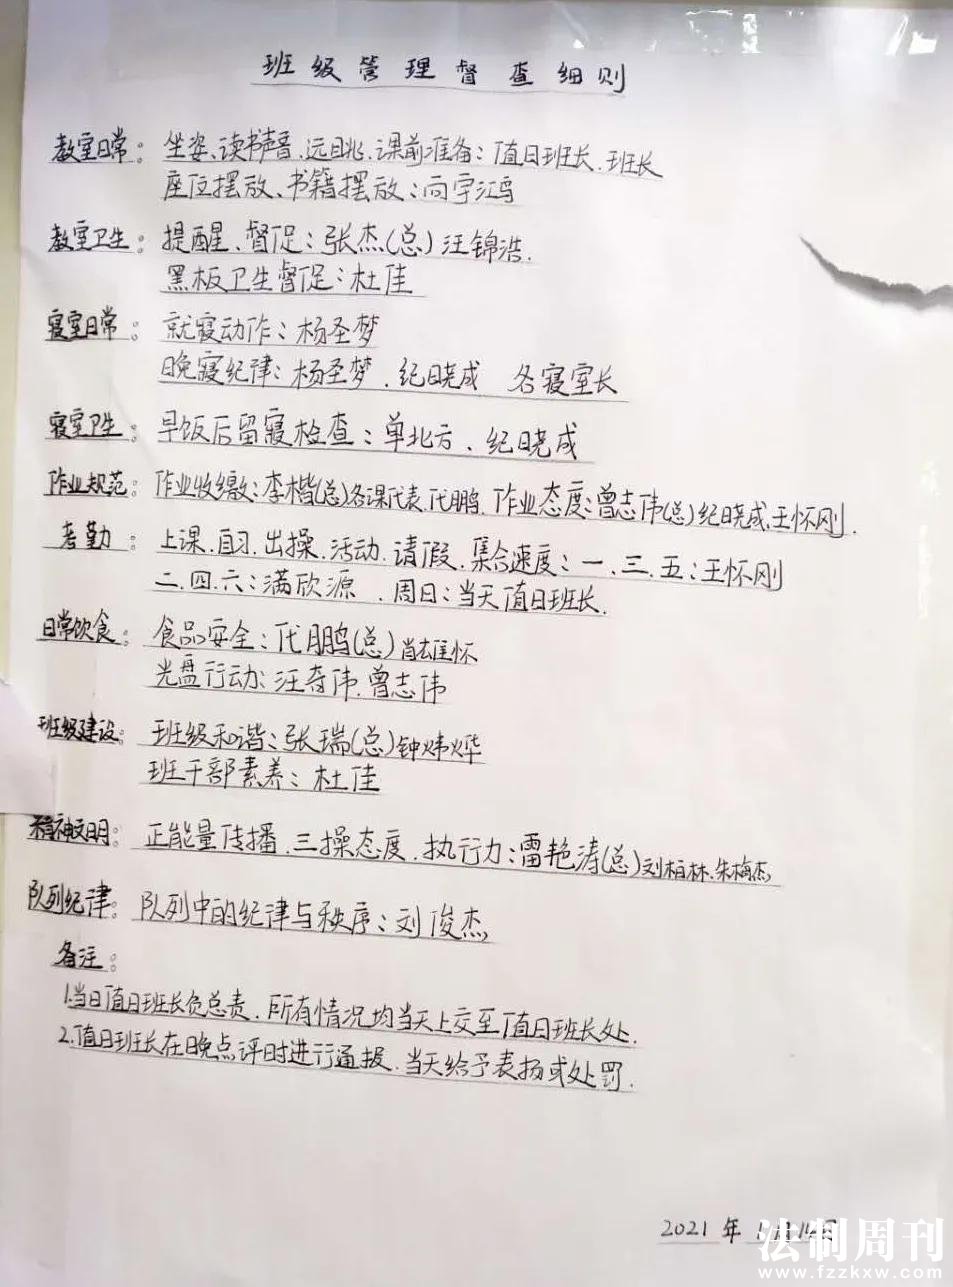 班级管理督查细则
教室日常：坐姿、读书声音、远眺、课前准备：值日班长、班长
座位摆放、书籍摆放：向宇鸿
教室卫生：提醒、督促：张杰(总)汪锦浩.
黑板卫生督促：杜佳
寝室日常：就寝动作：杨圣梦
晚寝纪律：杨圣梦、纪晓成 各寝室长
寝室卫生：早饭后留寝检查：单北方、纪晓成
作业规范：作业收缴：李楷(总)各课代表、代鹏、作业态度：曾志伟(总)纪晓成、王怀刚.
考勤：上课、自习、出操、活动、请假、集合速度：一、三、五：王怀刚
二、四、六：满欣源、周日：当天值日班长.
日常饮食：食品安全：代鹏(总)
光盘行动：汪奇伟、曾志伟
班级建设：班级和谐：张瑞(总)钟炜烨
班干部素养：杜佳
精神文明：正能量传播、三操态度、执行力：雷艳涛(总)刘柏林、朱梅杰
队列纪律：队列中的纪律与秩序：刘俊杰
备注：
1.当日值日班长负总责、所有情况均当天上交至值日班长处.
2.值日班长在晚点评时进行通报、当天给予表扬或处罚.
2021年1月14日
法制周刊
www.fzzkxw.com